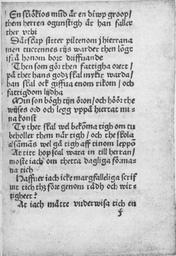 En skökios mud är en diwp groop/
them herren ogunstigh är han faller
ther vthi
Dårskap sitter
men tucctennes rijs warder then långt
ifrå honom
Then som gör then fattigha orett/
på thet hans godz skal mykit warda/
han skal ock giffua enom rikom/ och
fattigdom lijdha
Min son bögh tijn öron/ och höör the
wijses ord och legg vppå hierrat mi
na konst
Ty thet skal wel bekomma tigh om tu
beholler them när tigh/ och the skola
alsamans wel gå tigh aff tinom leppo
At titt hop skal wara in till herran/
moste iach om thetta dagligha förma
na tich
Haffuer iach icke margfalleliga scriff
uit tich thz före genom rådh och wit
tigheet?
At iach måtte vnderwisa tich en